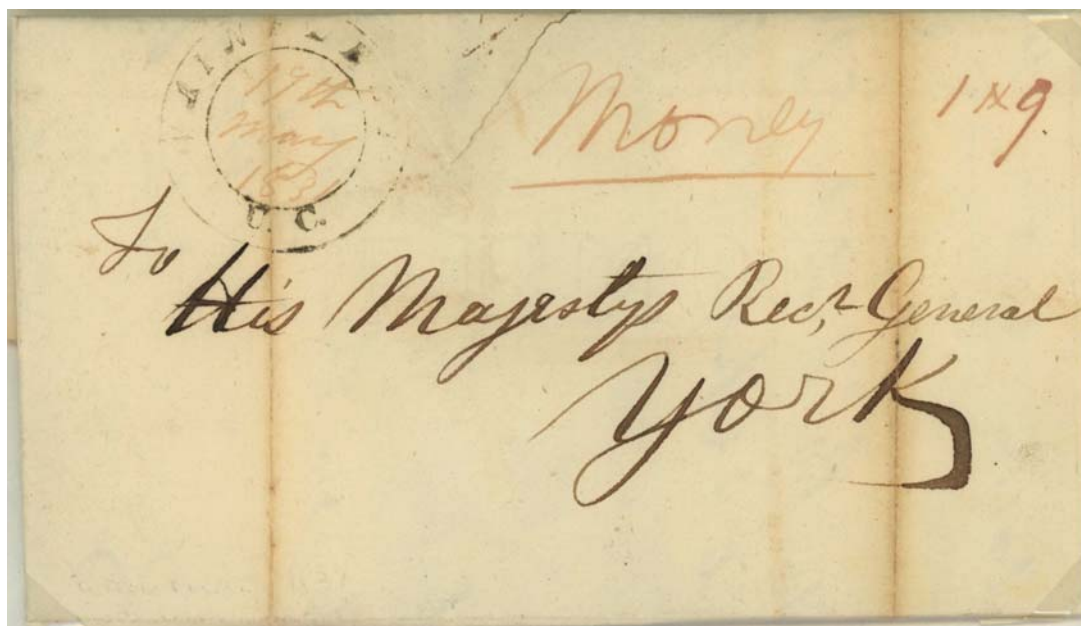 19th
May
1831
U. C.
Money
1 N 9
To
His Majestys Recr. General
York